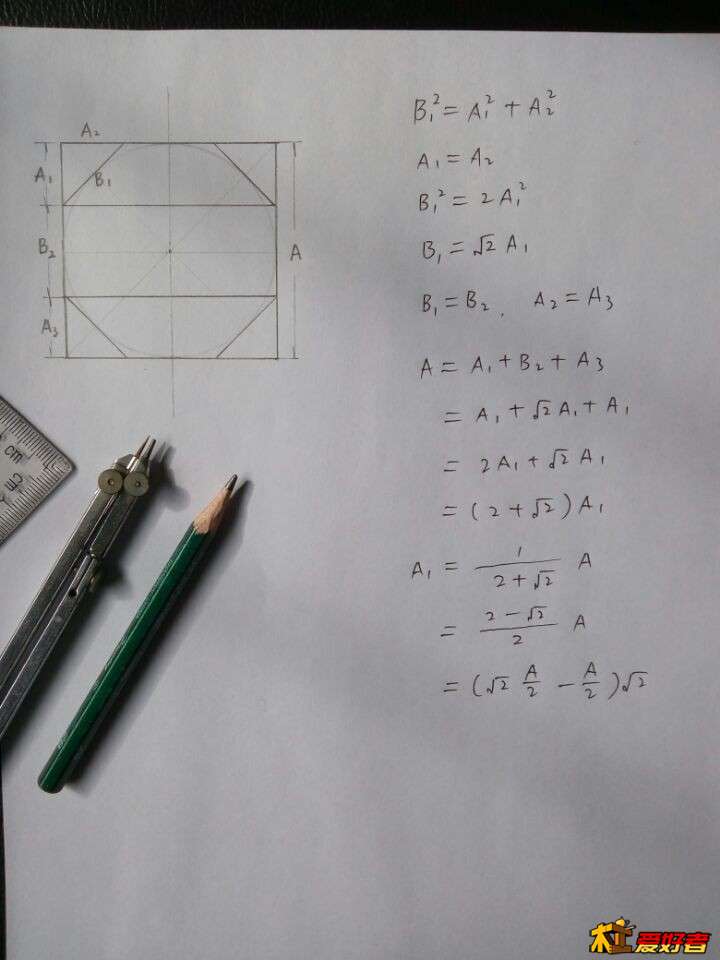 A₂
A₁
B₁
B₂
A
A₃
B₁² = A₁² + A₂²
A₁ = A₂
B₁² = 2A₁²
B₁ = √2 A₁
B₁ = B₂ , A₂ = A₃
A = A₁ + B₂ + A₃
= A₁ + √2 A₁ + A₁
= 2A₁ + √2 A₁
= (2 + √2) A₁
A₁ = 1/(2 + √2) A
= (2 - √2)/2 A
= (√2 A/2 - A/2)√2
cm
cm
木工爱好者